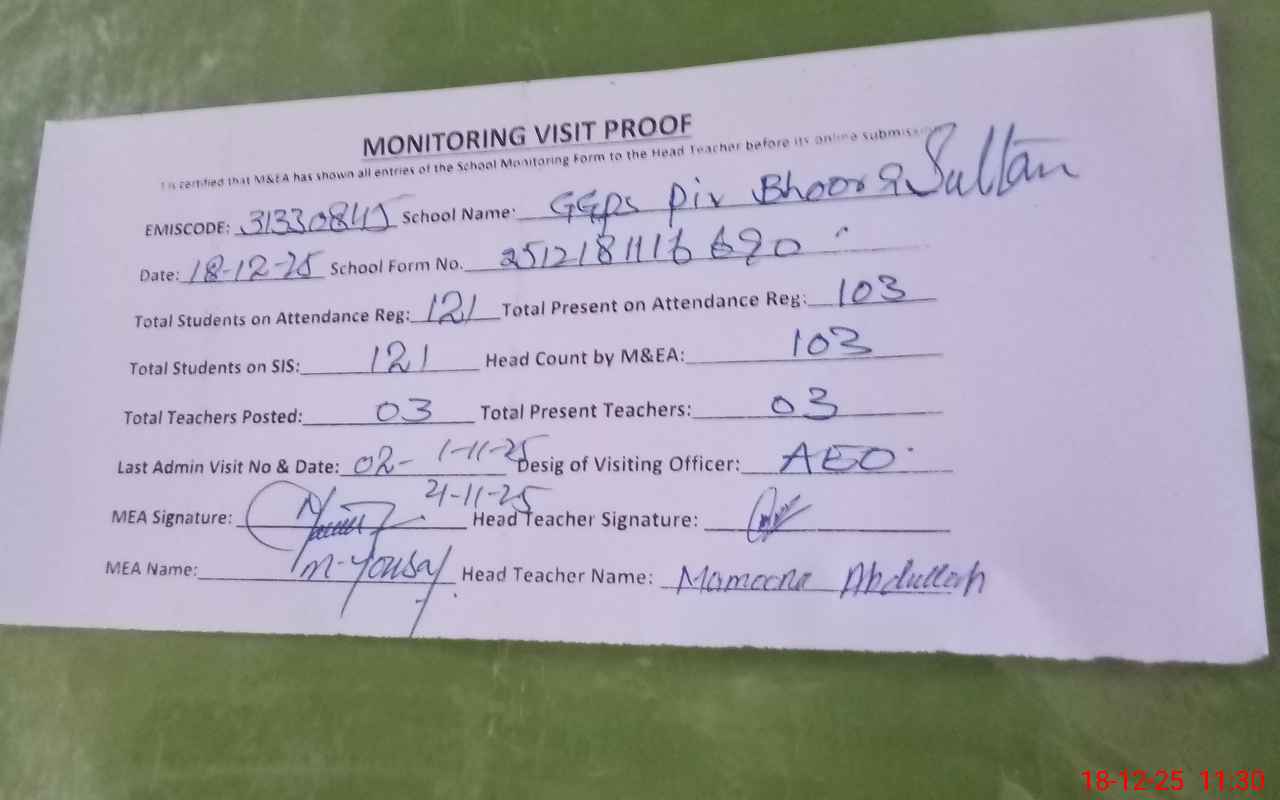 MONITORING VISIT PROOF
It is certified that M&EA has shown all entries of the School Monitoring Form to the Head Teacher before its online submission
EMISCODE: 31330845 School Name: GGPS Pir Bhoora Sultan
Date: 18-12-25 School Form No. 2512181116690
Total Students on Attendance Reg: 121 Total Present on Attendance Reg: 103
Total Students on SIS: 121 Head Count by M&EA: 103
Total Teachers Posted: 03 Total Present Teachers: 03
Last Admin Visit No & Date: 02- 1-11-25 Desig of Visiting Officer: AEO
21-11-25
MEA Signature: Head Teacher Signature:
MEA Name: M-Yousaf Head Teacher Name: Mameena Abdullah
18-12-25 11:30